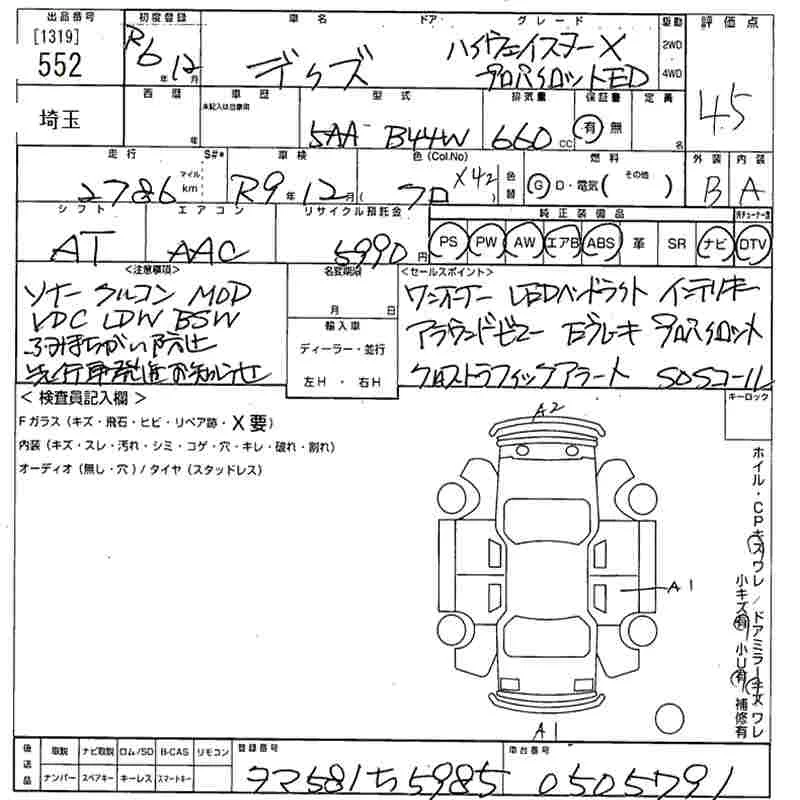 出品番号 初度登録 車名 ドア グレード 駆動 評価点
[1319]
552
R6 年 12 月
デイズ
ハイウェイスターX
プロパイロットED
2WD
4WD
4.5
埼玉
西暦 車歴 型式 排気量 保証書 定員
年
未記入は自家用
5AA-B44W
660 CC
有 無
名
走行 S#* 車検 色 (Col.No) 色替 燃料 外装 内装
2786 マイル km
R9 年 12 月
クロ X42
G D・電気 ( その他 )
B A
シフト エアコン リサイクル預託金 純正装備品
AT AAC 5990 円
PS PW AW エアB ABS 革 SR ナビ DTV
<注意事項>
ソナー クルコン MOD
VDC LDW BSW
ふみまちがい防止
先行車発進お知らせ
名変期限
月 日
輸入車
ディーラー・並行
左H ・ 右H
<セールスポイント>
ワンオーナー LEDヘッドライト インテリキー
アラウンドビュー Eブレーキ プロパイロット
クロストラフィックアラート SOSコール
キーロック
< 検査員記入欄 >
Fガラス (キズ・飛石・ヒビ・リペア跡・X要)
内装 (キズ・スレ・汚れ・シミ・コゲ・穴・キレ・破れ・割れ)
オーディオ (無し・穴) / タイヤ (スタッドレス)
A2
A1
A1
ホイル・CPキズワレ / ドアミラーキズワレ
小キズ有 小U有 補修有
後送品 取説 ナビ取説 ロム/SD B-CAS リモコン
ナンバー スペアキー キーレス スマートキー
登録番号
タマ581ち5985
車台番号
0505791